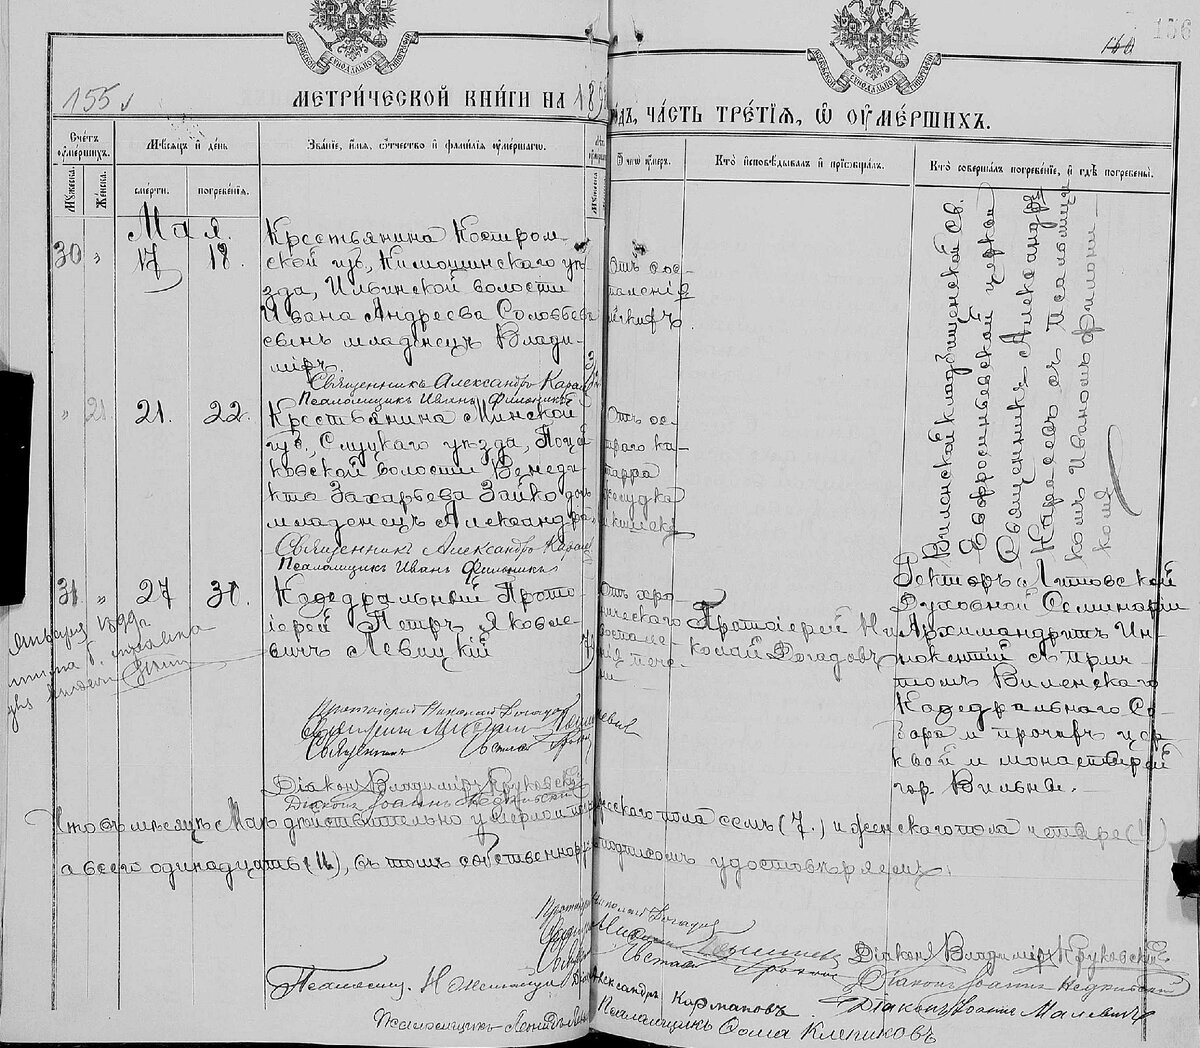 155
МЕТРИ́ЧЕСКОЙ КНИ́ГИ НА 189
ГОДЪ, ЧА́СТЬ ТРЕ́ТІЯ, Ѿ ОУМЕ́РШИХЪ.
160 156
Сче́тъ оуме́ршихъ.
Мѣ́сяцъ и҆ де́нь
Зва́ніе, и҆́мя, ѻ҆́тчество и҆ фами́лія оуме́ршагѡ.
Ѿ чегѡ̀ оу҆́меръ.
Кто̀ и҆сповѣ́дывалъ и҆ прїѡбща́лъ.
Кто̀ соверша́лъ погребе́ніе, и҆ гдѣ̀ погребены̀.
Му́жеска.
Же́нска.
сме́рти.
погребе́нія.
Мая.
30 " 17 18.
Крестьянина Костром-
ской губ., Кинешинскаго уѣ-
зда, Ильинской волости
Ивана Андреева Соловьева
сынъ младенецъ Влади-
міръ.
Священникъ Александръ Карас
Псаломщикъ Иванъ Филоникъ
Отъ вос-
паленія
легкихъ.
Виленской кладбищенской св.
Евфросиньевской церкви
Священникъ Александръ
Карасевъ съ Псаломщи-
комъ Иваномъ Филони-
комъ
" 21 21. 22.
Крестьянина Минской
губ., Слуцкаго уѣзда, Поцей-
ковской волости Венеди-
кта Захарьева Зайко дочь
младенецъ Александра.
Священникъ Александръ Карас
Псаломщикъ Иванъ Филоникъ
Отъ ос-
траго ка-
тарра
желудка
и кишекъ
31 " 27 30.
Каѳедральный Прото-
іерей Петръ Яковле-
вичъ Левицкій
Отъ хро-
ническаго
воспале-
нія пече-
ни
Протоіерей Ни-
колай Догадовъ
Ректоръ Литовской
Духовной Семинаріи
Архимандритъ Ин-
нокентій съ прич-
томъ Виленскаго
Каѳедральнаго Со-
бора и прочихъ цер-
квей и монастырей
гор. Вильны.
Января 1899 г.
Протоіерей Николай Догадовъ
Священникъ
Діаконъ Владиміръ Круковскій
Діаконъ Іоаннъ Недѣльскій
Что въ мѣсяцѣ Маѣ дѣйствительно умерло мужескаго пола семь (7.) и женскаго пола четыре (4)
а всего одинадцать (11), въ томъ собственноручнымъ подписомъ удостовѣряемъ:
Протоіерей Николай Догадовъ
Діаконъ Владиміръ Круковскій
Діаконъ Іоаннъ Недѣльскій
Діаконъ Іоаннъ Малевичъ
Александръ Кармановъ.
Псаломщикъ Леонидъ
Псаломщикъ Ѳома Клепиковъ